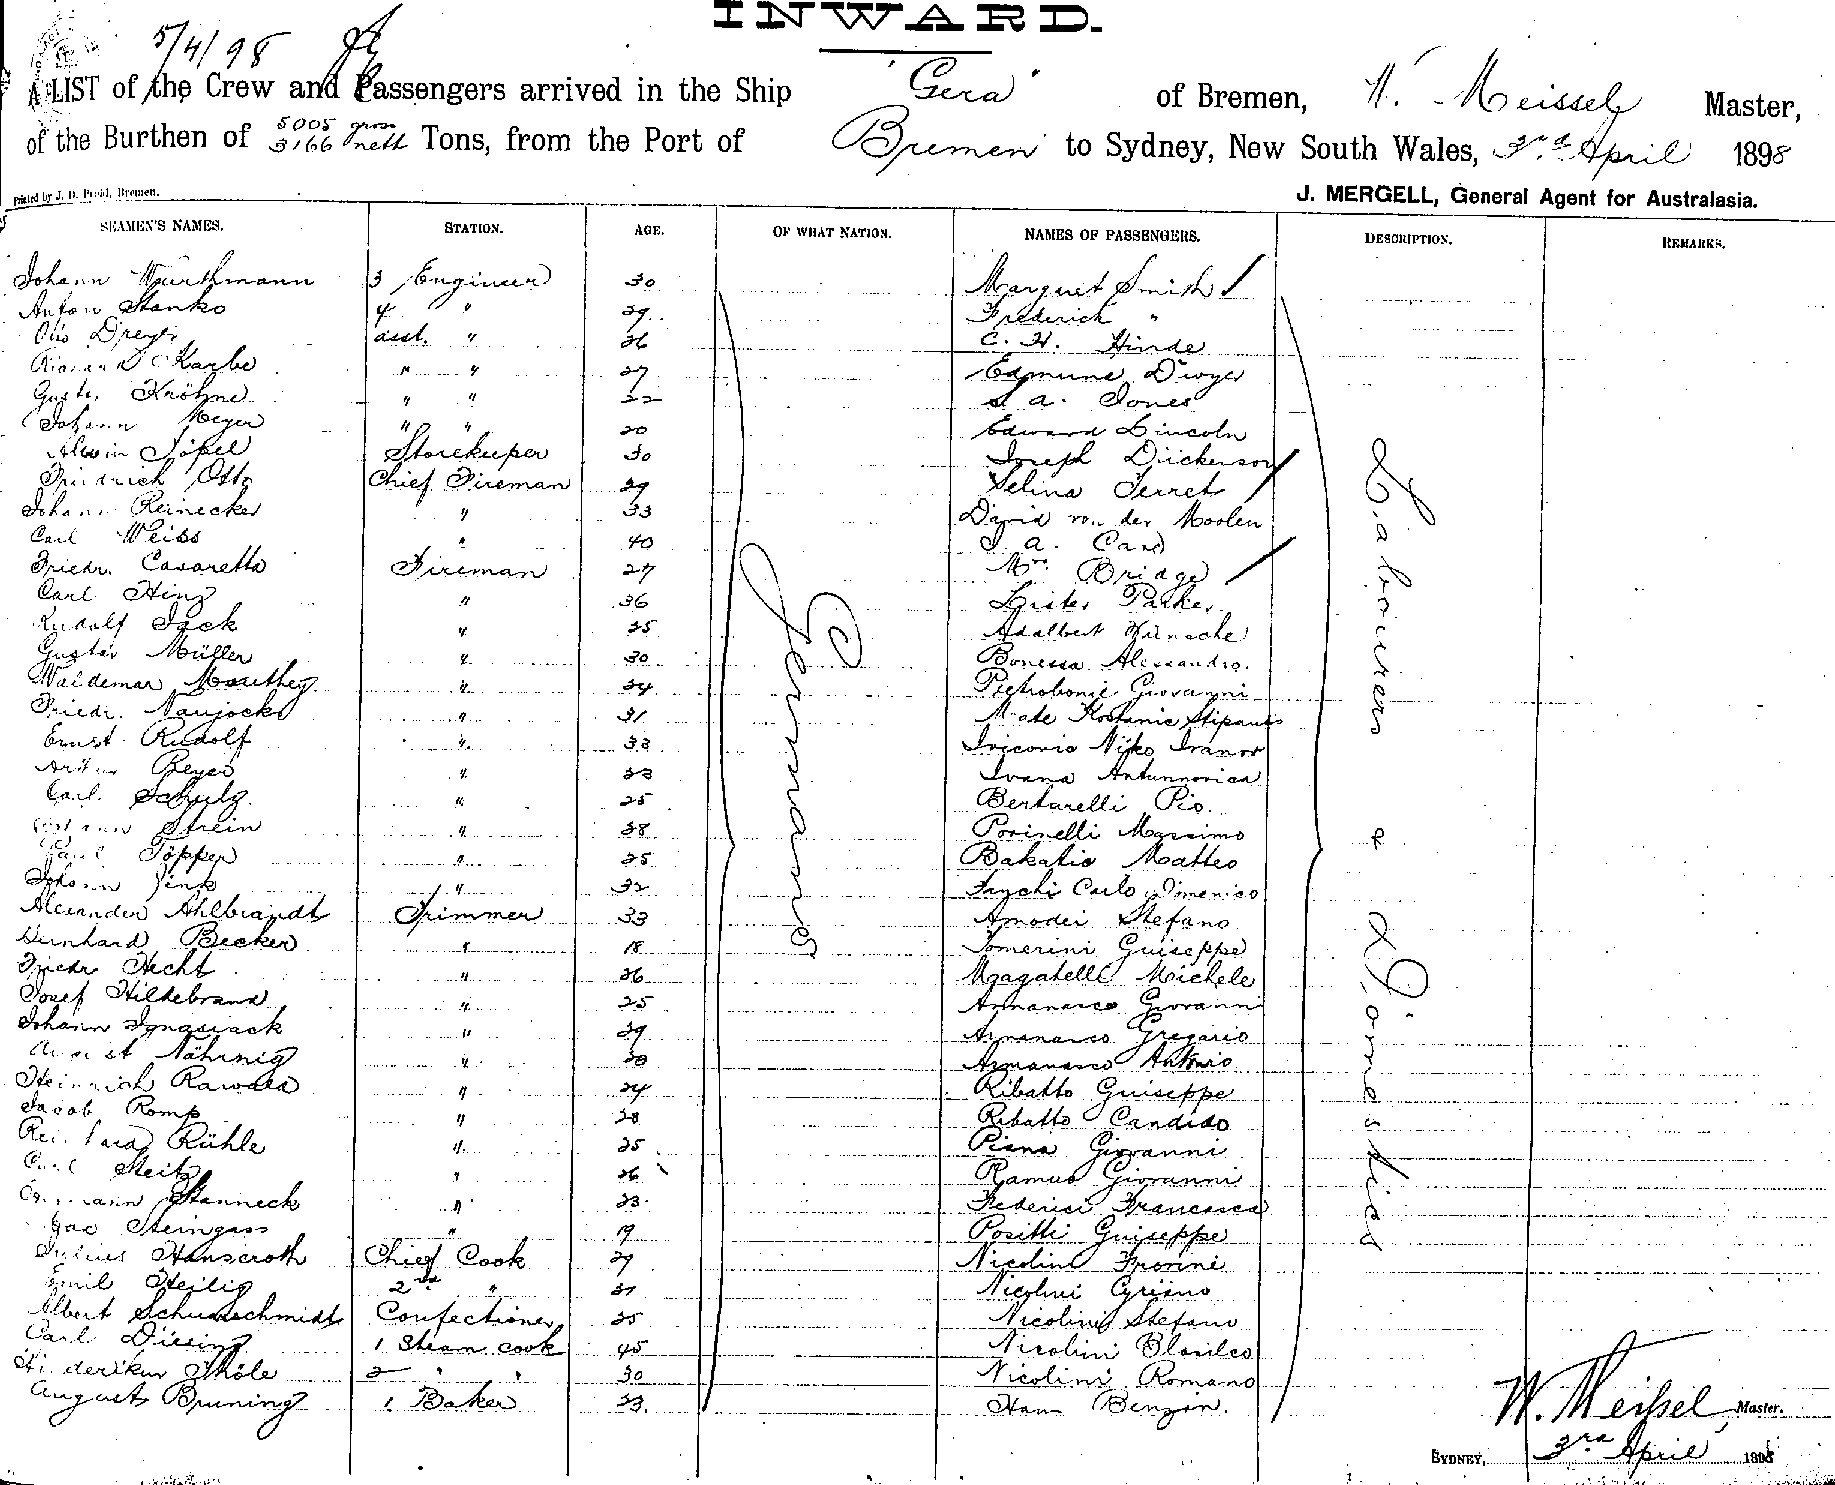 INWARD.
5/4/98
A LIST of the Crew and Passengers arrived in the Ship "Gera" of Bremen, W. Meissel Master,
of the Burthen of 5005 gross 3166 nett Tons, from the Port of Bremen to Sydney, New South Wales, 3rd April 1898
Printed by J. D. Pezold, Bremen.
J. MERGELL, General Agent for Australasia.
SEAMEN'S NAMES. STATION. AGE. OF WHAT NATION. NAMES OF PASSENGERS. DESCRIPTION. REMARKS.
Johann Wurthmann 3 Engineer 30 Margaret Smith
Anton Stanko 4 " 29 Frederick "
Otto asst. " 26 C. H. Hinde
Karbe " " 27 Edmund Dwyer
Gustav Kröhne " " 22 S a. Jones
Johann Meyer " " 20 Edward Lincoln
Alwin Töpel Storekeeper 30 Joseph Dickenson
Friedrich Otto Chief Fireman 29 Selina Terret
Johann Reinecker " 33 David von der Moolen
Carl Weiss " 40 a. Card
Friedr. Casaretto Fireman 27 Mrs Bridge
Carl Hinz " 36 Lister Parker
Rudolf Jack " 25 Adalbert
Gustav Müller " 30 Bonessa Alessandro.
Waldemar " 24 Pietroboni Giovanni
Friedr. Naujocks " 31 Mate Kostanic Stipanov
Ernst Rudolf " 33 Niko Ivanov
Artur Beyer " 23 Ivana
Carl Schulz " 25 Bertarelli Pio.
Strein " 38 Massimo
Töpper " 25 Bakatio Matteo
Johann " 32 Carlo Domenico
Alexander Ahlbrandt Trimmer 33 Amodei Stefano
Bernhard Becker " 18 Tomerini Guiseppe
Friedr Hecht " 26 Magatelli Michele
Josef Hildebrand " 25 Armanasco Giovanni
Johann Ignasiack " 29 Armanasco Gregorio
August Nähring " 28 Armanasco Antonio
Heinrich Rawald " 24 Ribatto Guiseppe
Jacob Romp " 28 Ribatto Candido
Reinhard Rühle " 25 Piana Giovanni
Carl Steitz " 26 Ramus Giovanni
Stanneck " 23 Federici Francesca
Steingass " 19 Positti Guiseppe
Julius Hanseroth Chief Cook 27 Nicolini
Emil Heilig 2nd " 31 Nicolini
Albert Confectioner 25 Nicolini Stefano
Carl 1 Steam cook 45 Nicolini
Thöle 2 " " 30 Nicolini Romano
August Bruning 1 Baker 23 Hans Benzin.
Germans
Labourers & Domestics
W. Meissel Master.
SYDNEY, 3rd April 1898